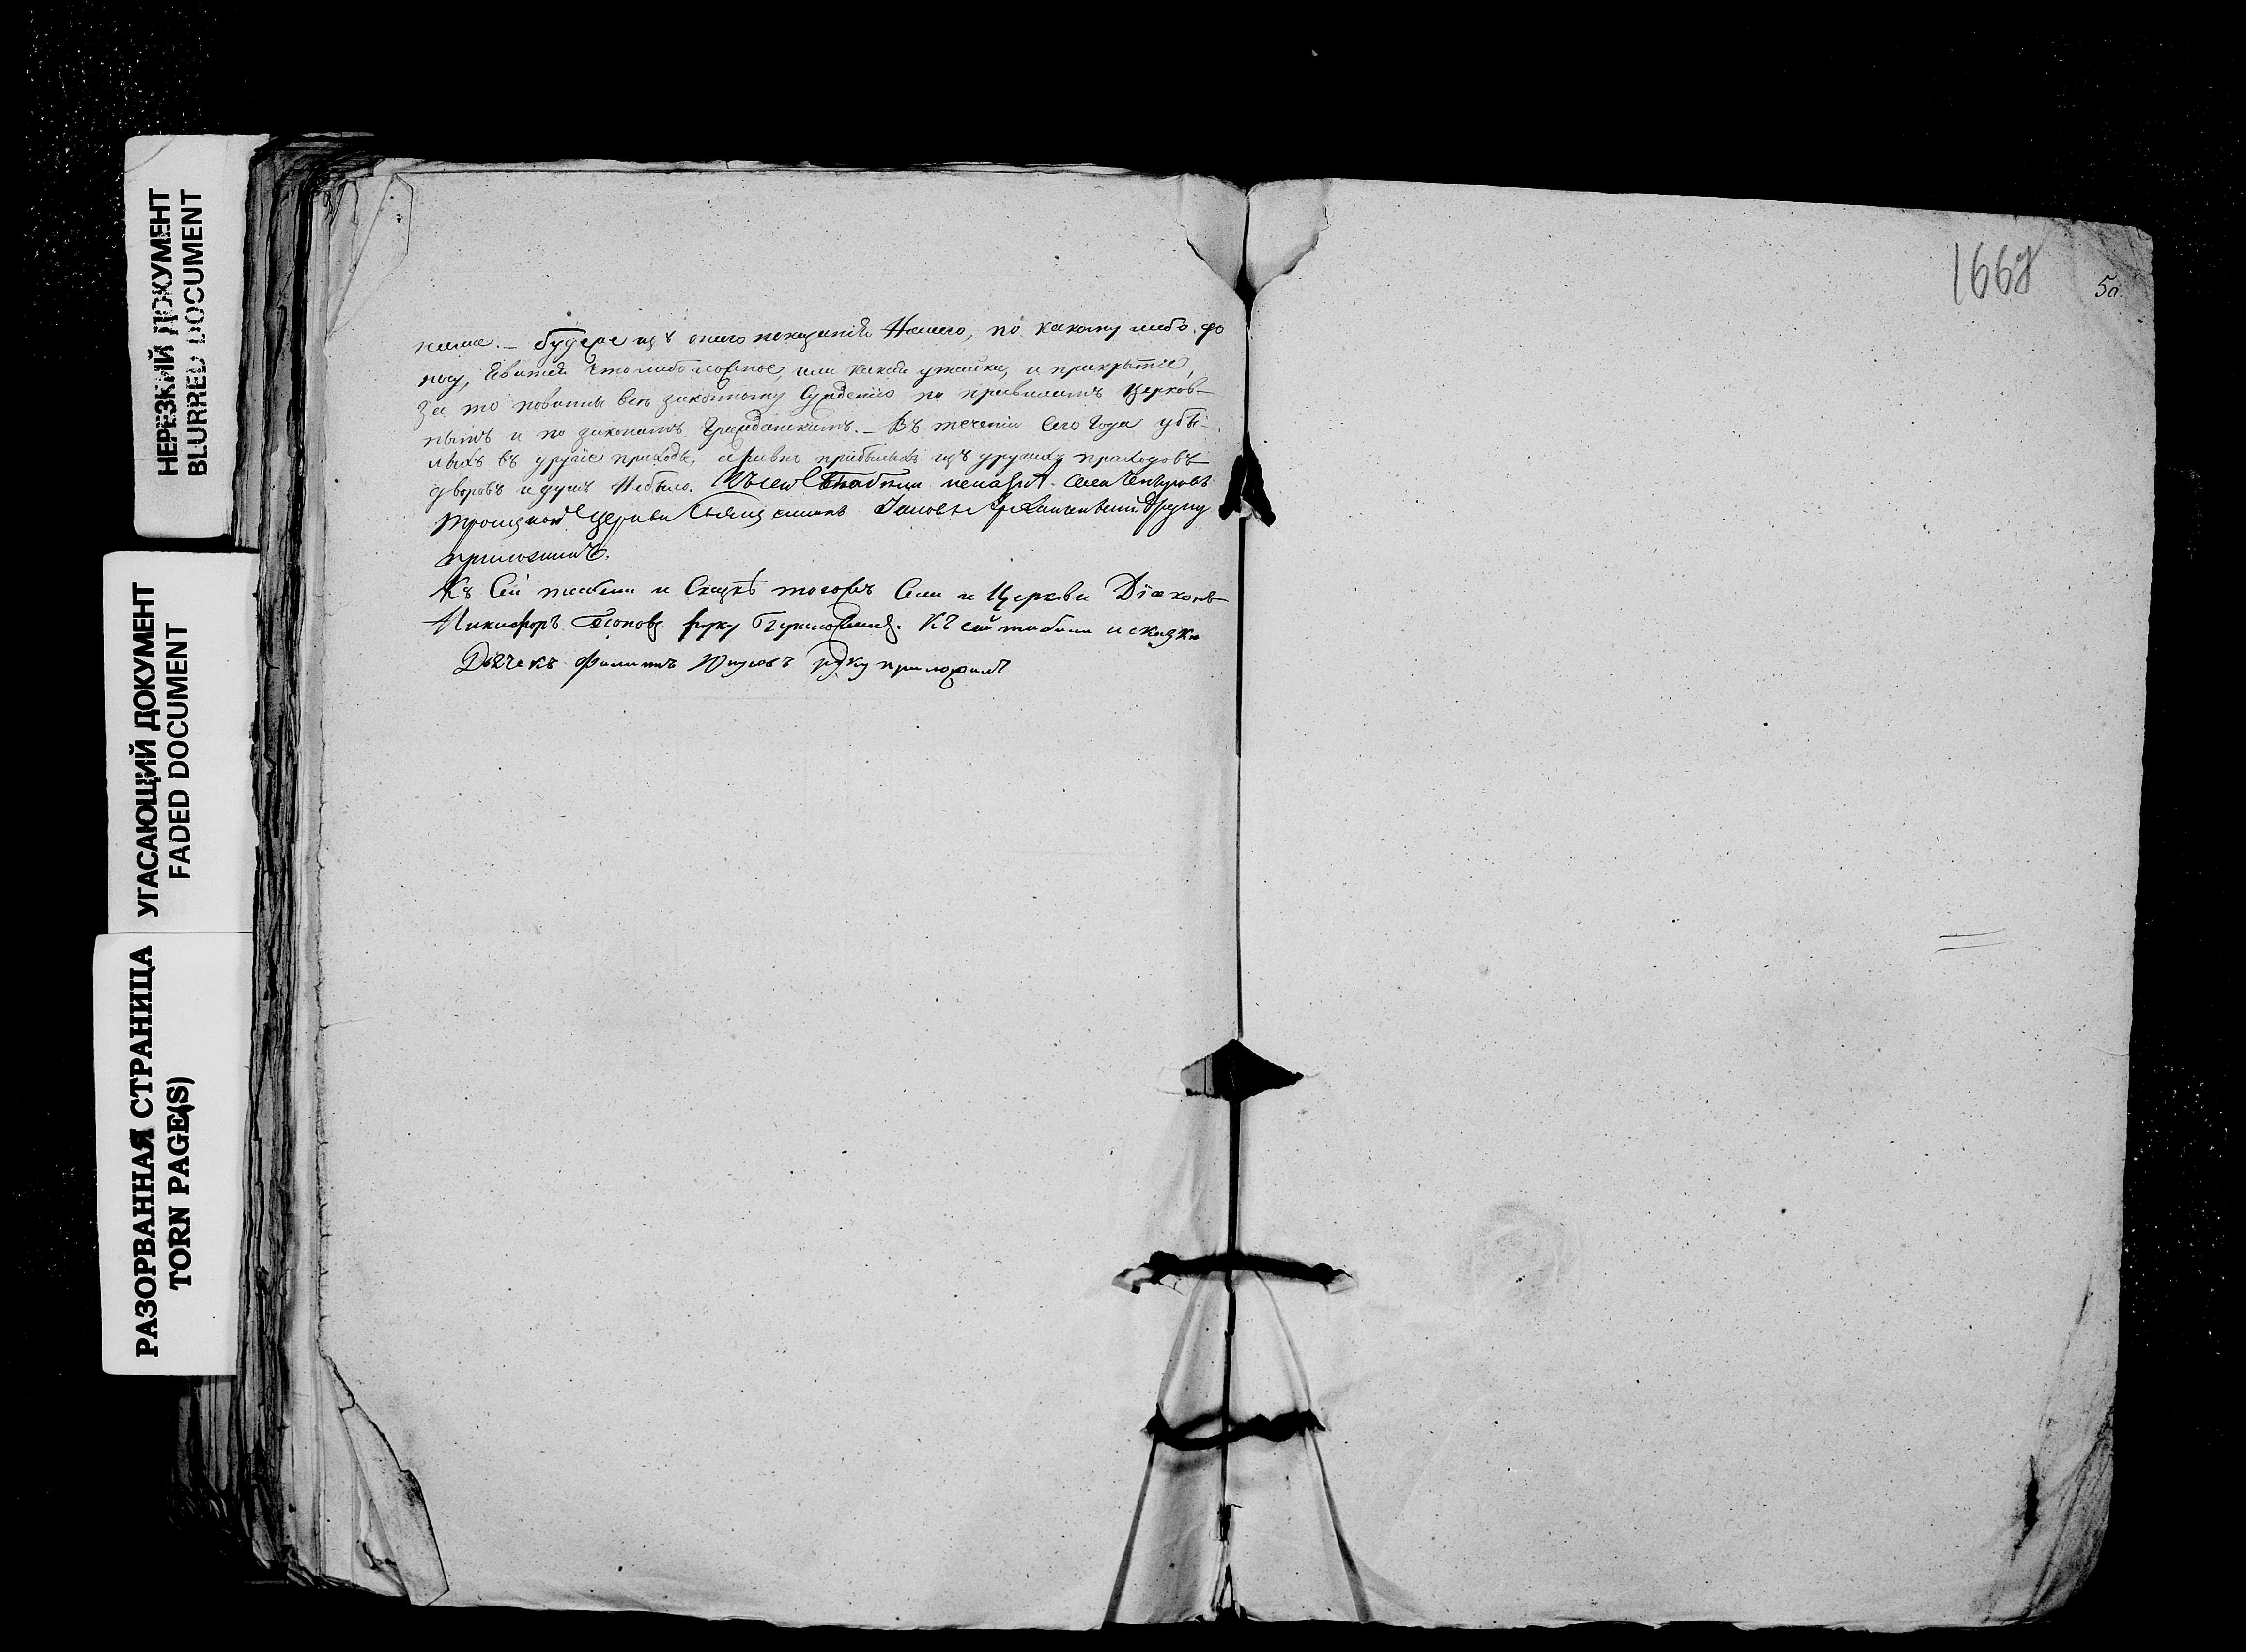 НЕРЕЗКИЙ ДОКУМЕНТ
BLURRED DOCUMENT
УГАСАЮЩИЙ ДОКУМЕНТ
FADED DOCUMENT
РАЗОРВАННАЯ СТРАНИЦА
TORN PAGE(S)
1668
50.
буде же изъ онаго показанія Нашего, по какому либо до
носу, Явится что либо ложное, или какая утайка, и прикрытіе,
За то повинны законному Сужденію по правиламъ Церков-
нымъ и по законамъ Гражданскимъ. – Въ теченіи Сего Года убы-
лыхъ въ другіе приходы, а равно прибылыхъ изъ другихъ приходовъ
дворовъ и душъ Небыло. Села
Троицкой Церкви Священникъ руку
приложилъ.
Къ Сей табели и Сказкѣ тогожъ Села и Церкви Діаконъ
Никифоръ Поповъ руку приложилъ. Къ сей табели и сказки
Дьячекъ Филиппъ руку приложилъ